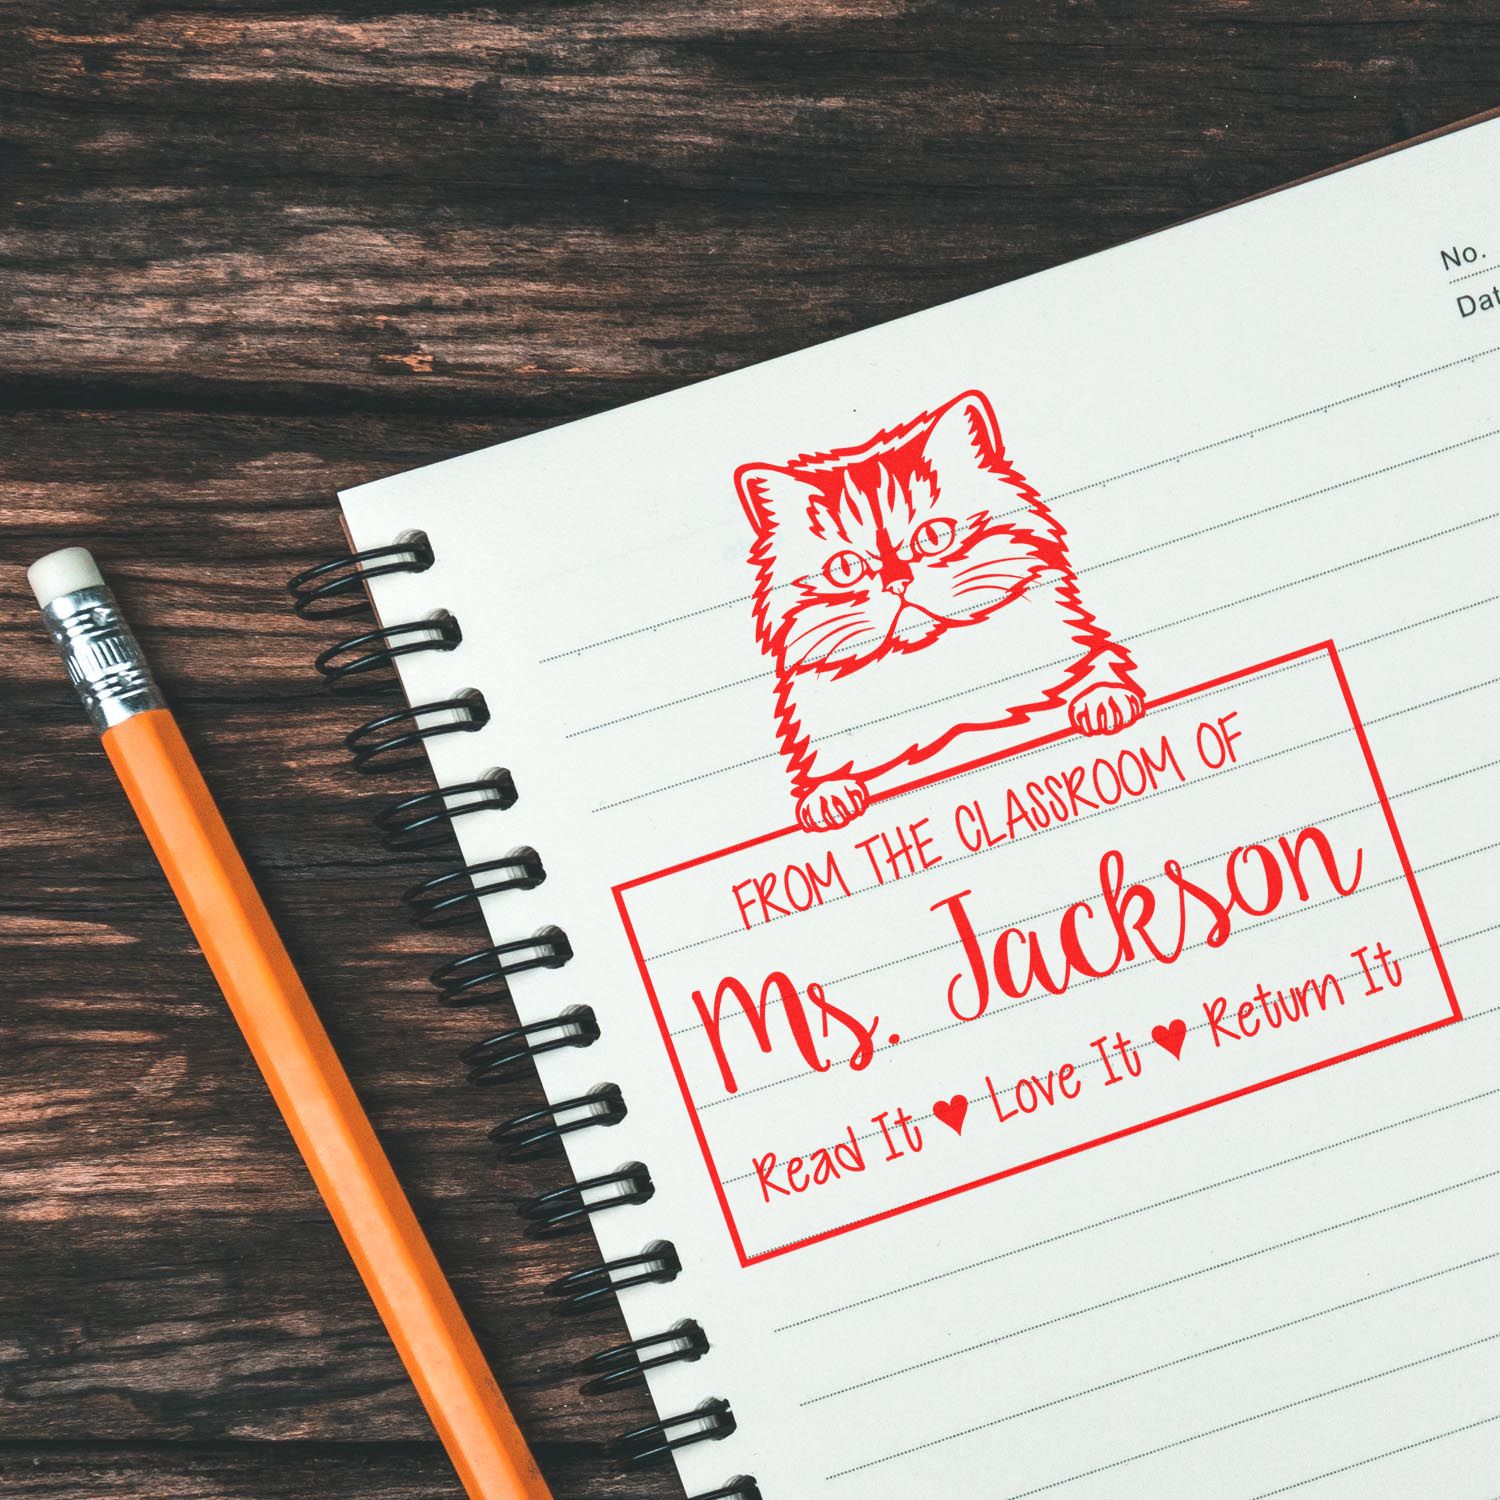 No.
Dat
FROM THE CLASSROOM OF
Ms. Jackson
Read It ♥ Love It ♥ Return It